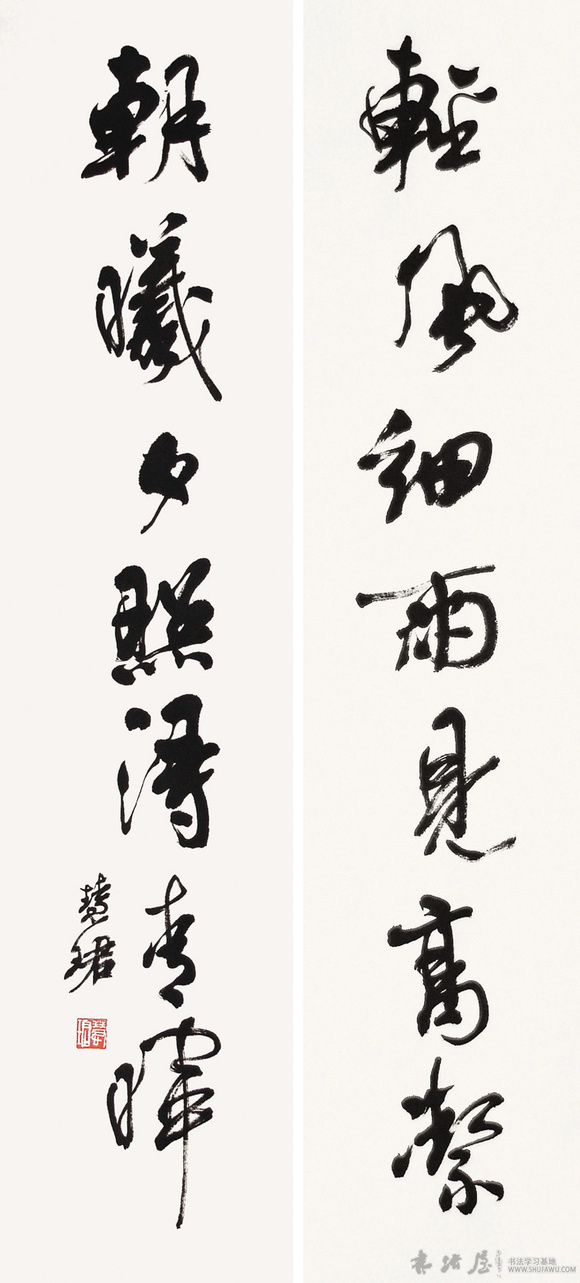 輕風細雨見高潔
朝曦夕照得青暉
慧珺
書法屋
书法学习基地
WWW.SHUFAWU.COM